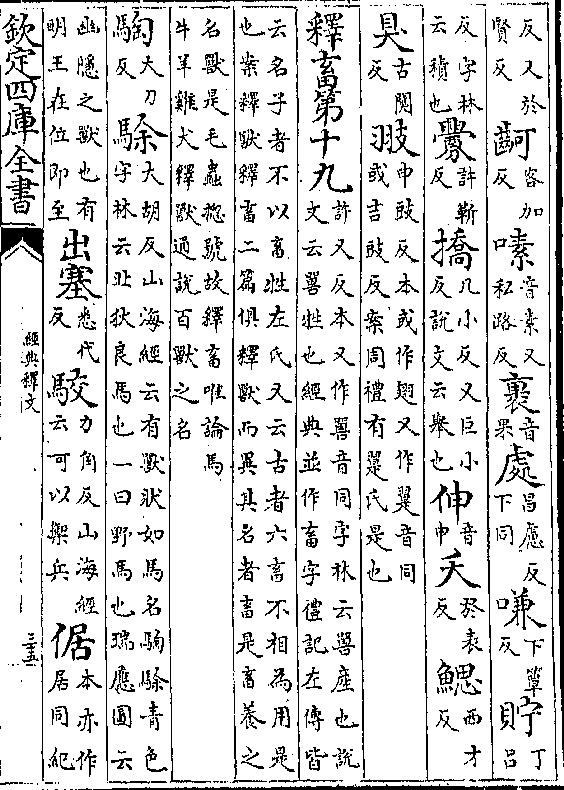 反又於賢反䶗客加反嗉音素又私路反裹音果處昌應反下同嗛下簟反貯丁呂
反字林云積也釁許靳反撟几小反又巨小反說文云舉也伸音申夭於表反鰓西才反
狊古闃反翄申豉反本或作翅又作翼音同或吉豉反案周禮有翨氏是也
釋畜第十九許又反本又作嘼音同字林云嘼產也說文云嘼牲也經典並作畜字禮記左傳皆
云名子者不以畜牲左氏又云古者六畜不相為用是也案釋獸釋畜二篇俱釋獸而異其名者畜是畜養之
名獸是毛蟲揔號故釋畜唯論馬牛羊雞犬釋獸通說百獸之名
騊大刀反駼大胡反山海經云有獸狀如馬名騊駼青色字林云北狄良馬也一曰野馬也瑞應圖云
幽隱之獸也有明王在位即至出塞悉代反駮力角反山海經云可以禦兵倨本亦作居同紀
欽定四庫全書
經典釋文
三十五